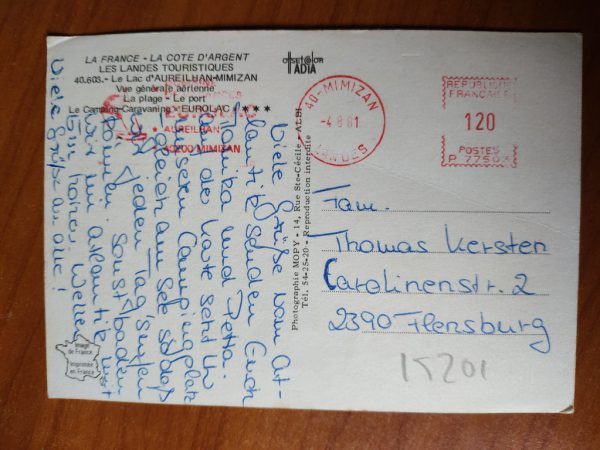 LA FRANCE - LA COTE D'ARGENT
LES LANDES TOURISTIQUES
40.603. - Le Lac d'AUREILHAN-MIMIZAN
Vue générale aérienne
La plage - Le port
Le Camping-Caravaning "EUROLAC" ★★★
OFFSET COLOR
IADIA
AUREILHAN
40200 MIMIZAN
40-MIMIZAN
-4-8 81
LANDES
REPUBLIQUE
FRANCAISE
120
POSTES
P 77503
Photographie MOPY - 14, Rue Ste-Cécile - ALBI
Tél. 54-25-20 - Reproduction interdite
Viele Grüße vom At-
lantik senden Euch
Monika und Petra.
Auf der Karte seht Ihr
unseren Campingplatz
gleich am See, so daß
wir jeden Tag surfen
können. Sonst baden
wir im Atlantik mit
hohen Wellen.
Viele Grüße an alle!
Fam.
Thomas Kersten
Carolinenstr. 2
2390 Flensburg
15201
Image
de France
Imprimée
en France